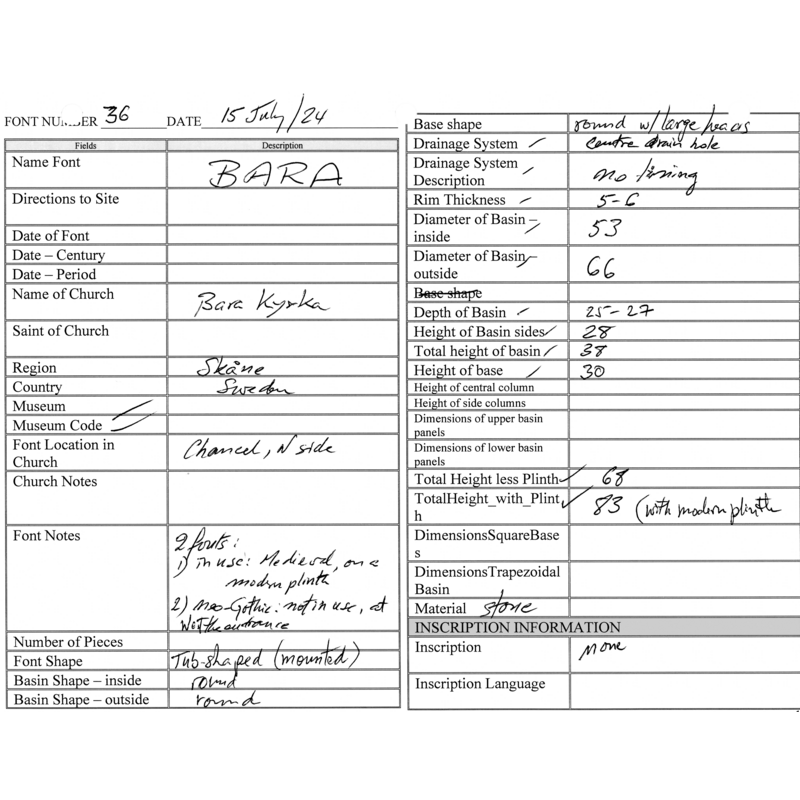 FONT NUMBER 36 DATE 15 July/24
Fields Description
Name Font BARA
Directions to Site
Date of Font
Date – Century
Date – Period
Name of Church Bara Kyrka
Saint of Church
Region Skåne
Country Sweden
Museum
Museum Code
Font Location in Chancel, N side
Church
Church Notes
Font Notes 2 fonts:
1) in use: Medieval, on a
modern plinth
2) neo-Gothic: not in use, at
W of the entrance
Number of Pieces
Font Shape Tub-shaped (mounted)
Basin Shape – inside round
Basin Shape – outside round
Base shape round w/ large heads
Drainage System centre drain hole
Drainage System no lining
Description
Rim Thickness 5-6
Diameter of Basin – 53
inside
Diameter of Basin– 66
outside
Base shape
Depth of Basin 25-27
Height of Basin sides 28
Total height of basin 38
Height of base 30
Height of central column
Height of side columns
Dimensions of upper basin
panels
Dimensions of lower basin
panels
Total Height less Plinth 68
TotalHeight_with_Plint 83 (with modern plinth
h
DimensionsSquareBase
s
DimensionsTrapezoidal
Basin
Material stone
INSCRIPTION INFORMATION
Inscription None
Inscription Language